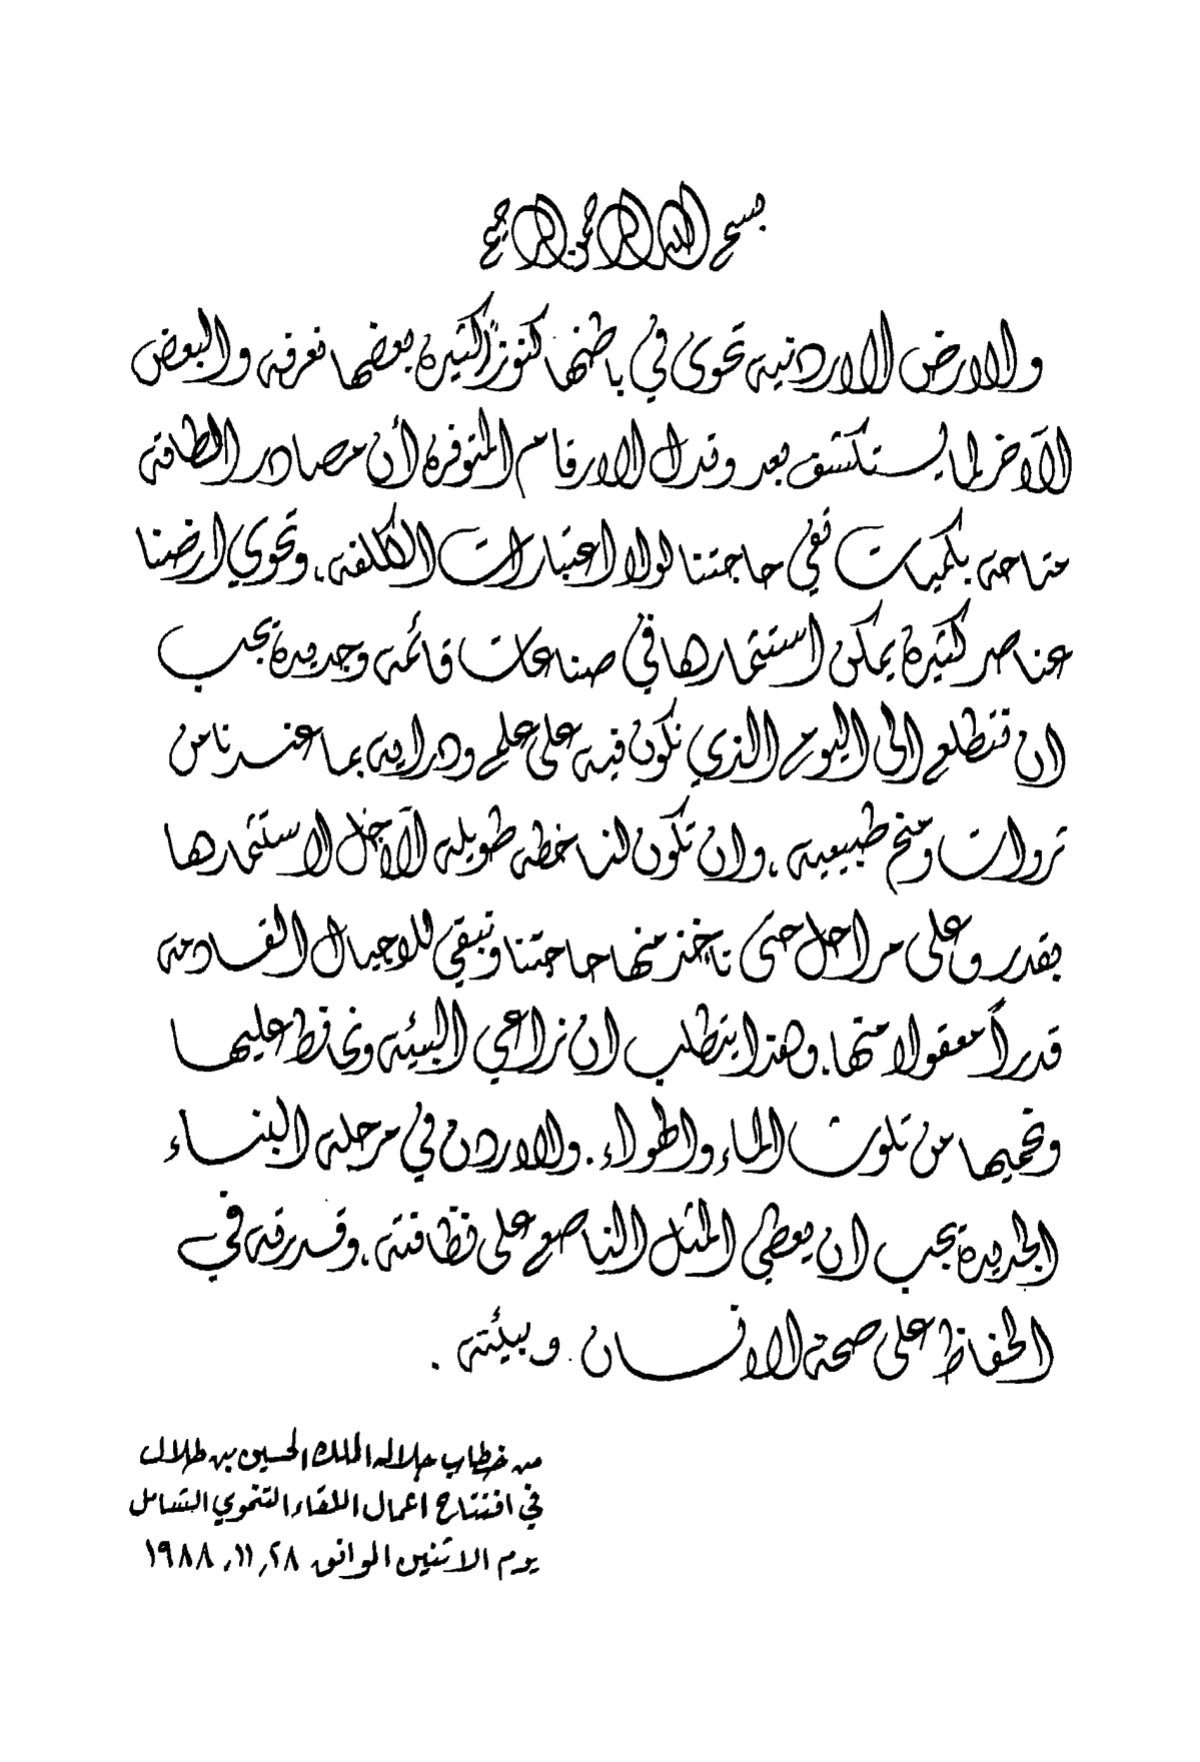 بسم الله الرحمن الرحيم
والارض الاردنية تحوى في باطنها كنوزاً كثيرة بعضها نعرفه والبعض
الآخر لما يستكشف بعد وتدل الارقام المتوفرة أن مصادر الطاقة
متاحة بكميات تفي حاجتنا لولا اعتبارات الكلفة، وتحوي ارضنا
عناصر كثيرة يمكن استثمارها في صناعات قائمة وجديدة يجب
ان نتطلع الى اليوم الذي نكون فيه على علم ودراية بما عندنا من
ثروات ومنح طبيعية، وان تكون لنا خطة طويلة الآجل لاستثمارها
بقدر وعلى مراحل حتى نأخذ منها حاجتنا ونبقي للاجيال القادمة
قدراً معقولا منها. وهذا يتطلب ان نراعي البيئة ونحافظ عليها
ونحميها من تلوث الماء والهواء. والاردن في مرحلة البناء
الجديدة يجب ان يعطي المثل الناصع على نظافته، وقدرته في
الحفاظ على صحة الانسان وبيئته.
من خطاب جلالة الملك الحسين بن طلال
في افتتاح اعمال اللقاء التنموي الشامل
يوم الاثنين الموافق ٢٨، ١١، ١٩٨٨